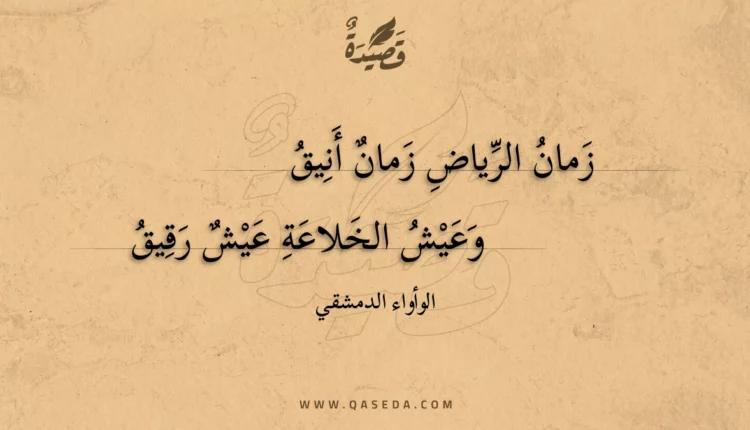 قَصِيدَةٌ
زَمانُ الرِّياضِ زَمانٌ أَنِيقُ
وَعَيْشُ الخَلاعَةِ عَيْشٌ رَقِيقُ
الوأواء الدمشقي
WWW.QASEDA.COM